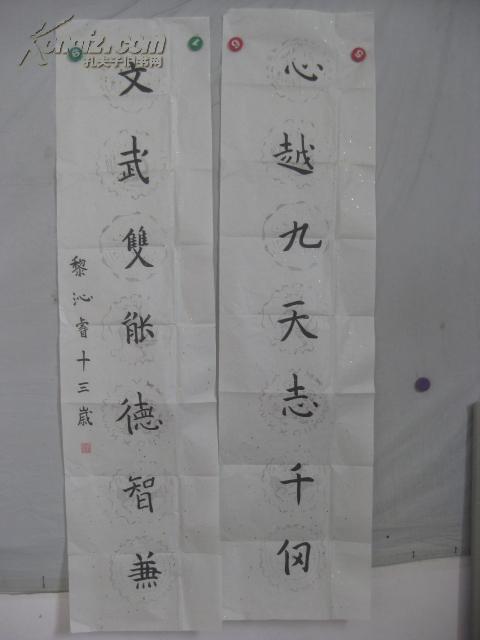 心越九天志千冈
文武雙能德智兼
黎沁睿十三歲
Kongfz.com
孔夫子旧书网